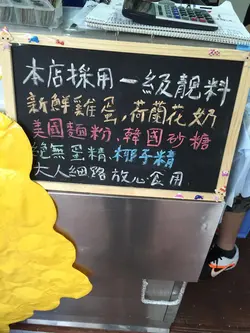 本店採用一級靚料
新鮮雞蛋,荷蘭花奶
美國麵粉,韓國砂糖
絕無蛋精,椰子精
大人細路放心食用